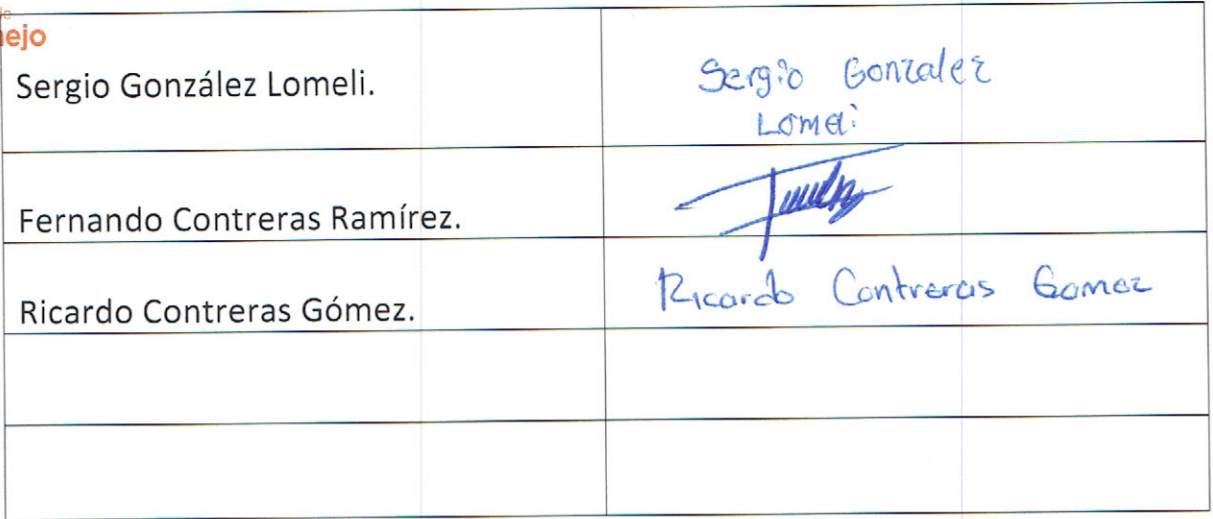 de
nejo
Sergio González Lomeli.
Sergio Gonzalez
Lomeli
Fernando Contreras Ramírez.
Ricardo Contreras Gómez.
Ricardo Contreras Gomez